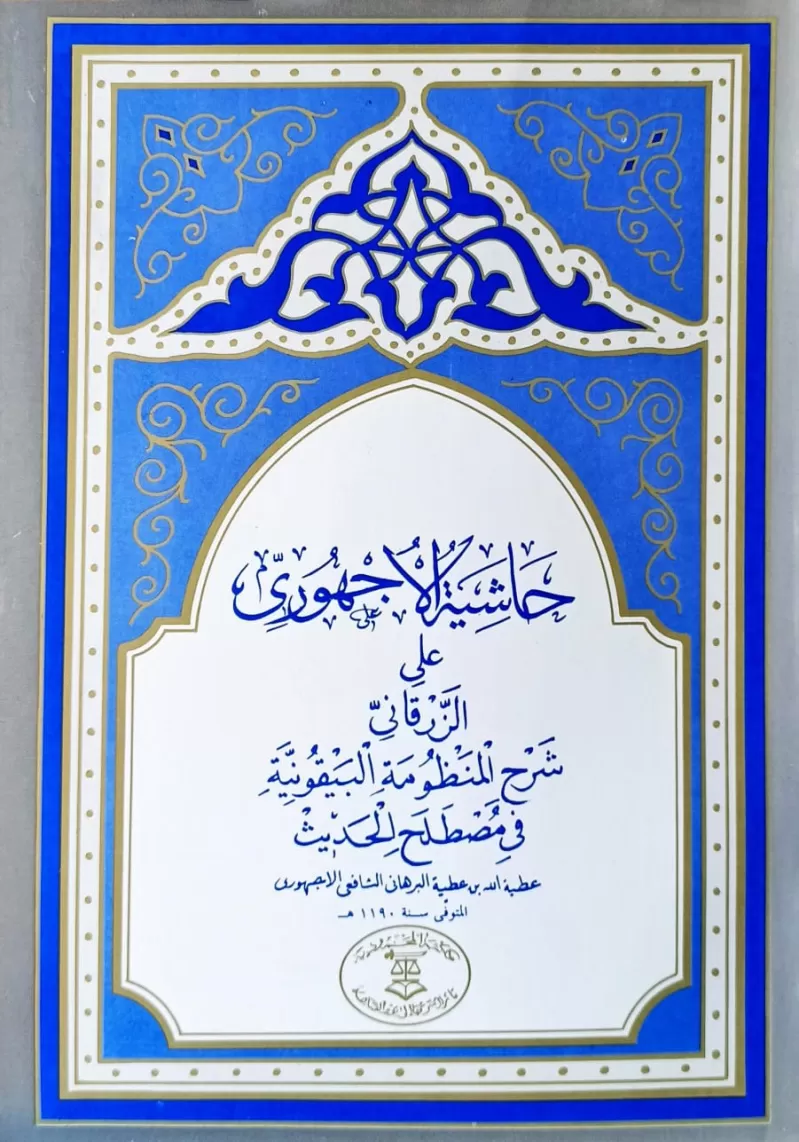 حَاشِيَةُ الْأُجْهُورِيِّ
على
على
الزَّرْقَانِيّ
شَرْحِ الْمَنْظُومَةِ الْبَيْقُونِيَّةِ
فِي مُصْطَلَحِ الْحَدِيْثْ
عطية الله بن عطية البرهانى الشافعى الاجهورى
المتوفى سنة ١١٩٠ هـ